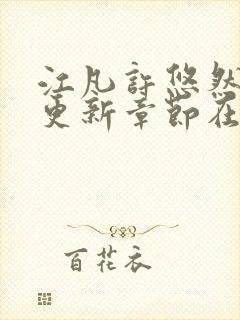 江凡许悠然
更新章节在
百花衣